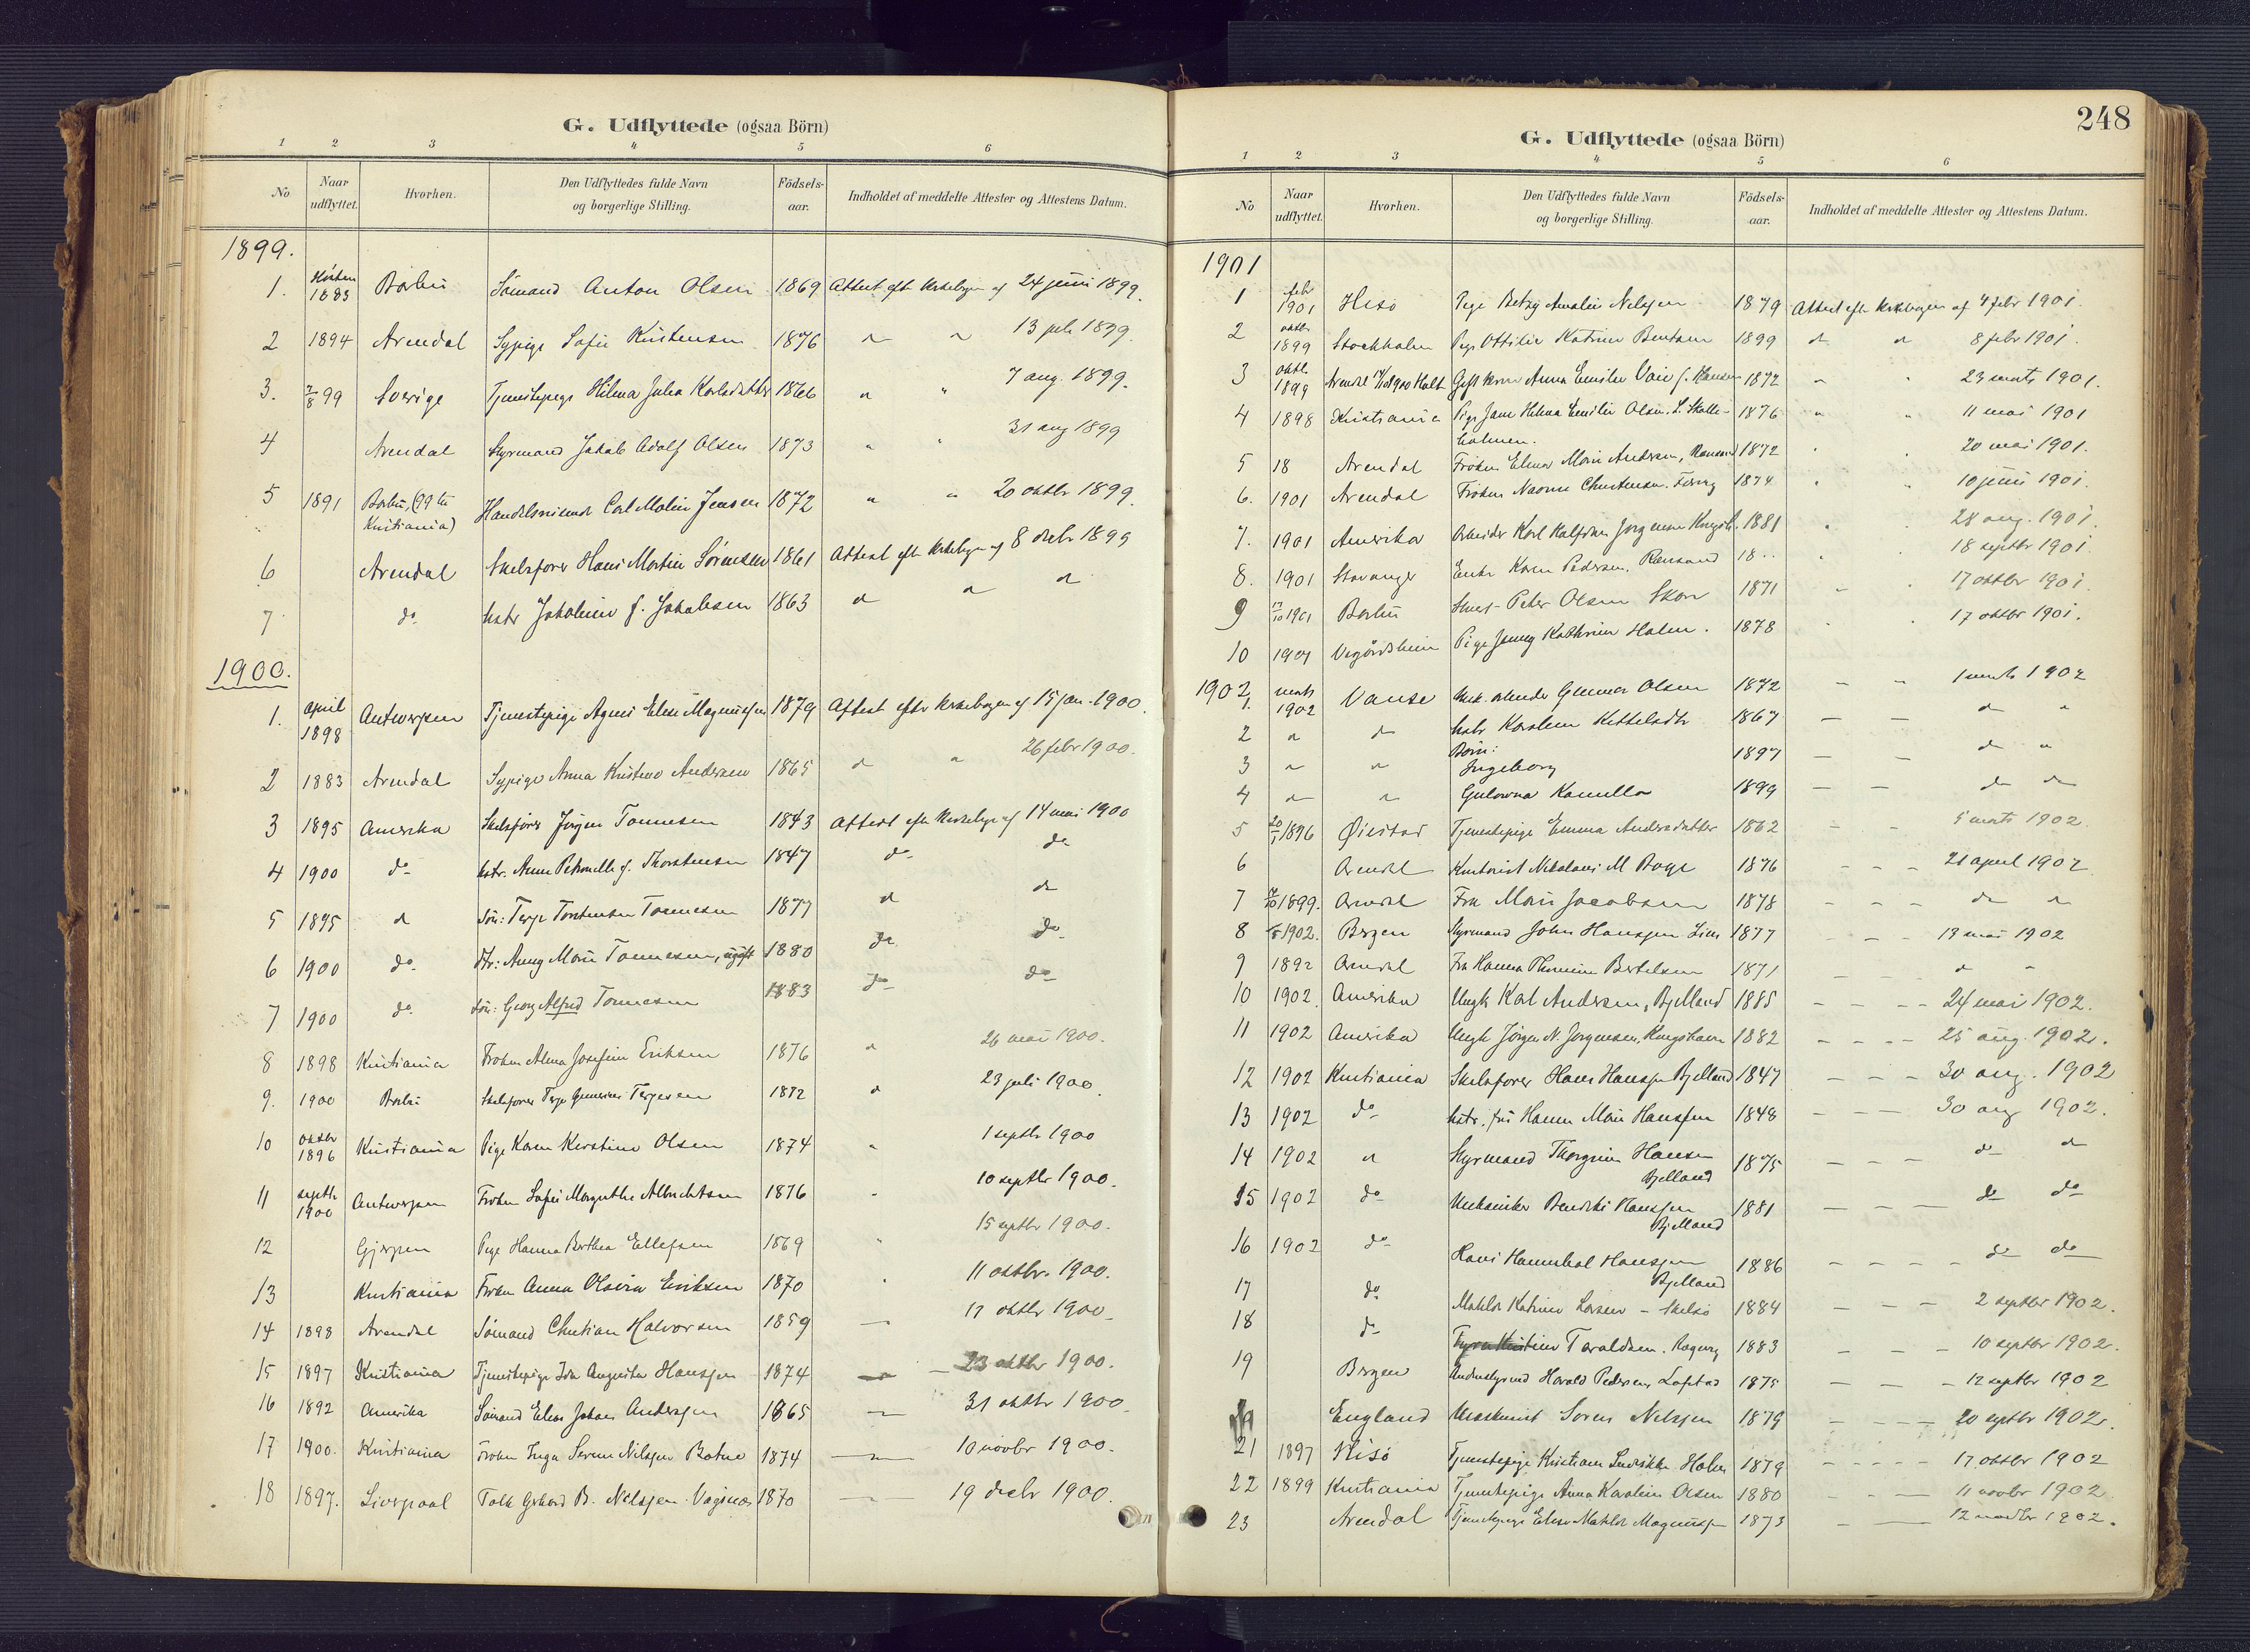 G. Udflyttede (ogsaa Börn)
1 2 3 4 5 6
No Naar udflyttet. Hvorhen. Den Udflyttedes fulde Navn og borgerlige Stilling. Födsels-aar. Indholdet af meddelte Attester og Attestens Datum.
1899.
1. Høsten 1883 Barbu Sømand Anton Olsen 1869 Attest eft. kirkebogen af 24 juni 1899.
2 1894 Arendal Sypige Sofie Kristensen 1876 " " 13 juli 1899.
3. 7/8 99 Sverige Tjenestepige Hilma Julia Karlsdatter 1866 " " 7 aug. 1899.
4 Arendal Styrmand Jakob Adolf Olsen 1873 " " 31 aug 1899
5 1891 Barbu, (99 til Kristiania) Handelsmand Carl Malin Jensen 1872 " " 20 oktbr 1899.
6 Arendal Skibsfører Hans Martin Sørensen 1861 Attest eft. kirkebogen af 8 decbr 1899
7 do hstr Jakobine f. Jakobsen 1863 " " "
1900.
1. april 1898 Antwerpen Tjenestepige Agnes Elise Magnussen 1879 Attest efter kirkebogen af 15 jan. 1900.
2 1883 Arendal Sypige Anna Kristine Andersen 1865 " " 26 febr 1900.
3 1895 Amerika Skibsfører Jörgen Tønnesen 1843 Attest eft. kirkebogen af 14 mai 1900
4 1900 do hstr. Anne Petronelle f. Thorstensen 1847 do do
5 1895 " Søn: Terje Torstensen Tønnesen 1877 " "
6 1900 do Dtr: Anny Marie Tønnesen, ugift 1880 do do
7 1900 do Søn: Georg Alfred Tønnesen 1883 do do
8 1898 Kristiania Frøken Alma Josefine Eriksen 1876 " 26 mai 1900.
9. 1900 Barbu Skibsfører Terje Terjesen 1872 " 23 juli 1900.
10 oktbr 1896 Kristiania Pige Karen Kirstine Olsen 1874 " 1 septbr 1900
11 septbr 1900 Antwerpen Frøken Sofie Margrethe Albrechtsen 1876 " 10 septbr 1900.
12 Gjerpen Pige Hanna Berthea Ellefsen 1869 " 15 septbr 1900.
13 Kristiania Frøken Anna Olivia Eriksen 1870 " 11 oktbr. 1900.
14 1898 Arendal Sømand Christian Halvorsen 1859 — 17 oktbr 1900.
15 1897 Kristiania Tjenestepige Ida Augusta Hanssen 1874 — 23 oktbr 1900.
16 1892 Amerika Sømand Elias Johan Anderssen 1865 — 31 oktbr 1900.
17 1900. Kristiania Frøken Inga Serine Nilssen Botne 1874 — 10 novbr 1900.
18 1897. Liverpool Tolk Gerhard B. Nilssen Vagsnes 1870 — 19 decbr 1900.
248
G. Udflyttede (ogsaa Börn)
1 2 3 4 5 6
No Naar udflyttet. Hvorhen. Den Udflyttedes fulde Navn og borgerlige Stilling. Födsels-aar. Indholdet af meddelte Attester og Attestens Datum.
1901
1 febr 1901 Hisö Pige Betzy Amalie Nilssen 1879 Attest efter kirkebogen af 4 febr 1901.
2 oktbr 1899 Stockholm Pige Ottilie Katrine Bentsen 1899 " " 8 febr 1901.
3 oktbr. 1899 Arendal Holt Gift kone Anna Emilie f. Hansen 1872 " " 23 marts 1901.
4 1898 Kristiania Pige Jane Helma Emilie Olsen. L. Skolleholmen. 1876 " " 11 mai 1901
5 18 Arendal Frøken Elina Marie Andersen, Rænsand 1872 " 20 mai 1901.
6. 1901 Arendal Frøken Naomi Christensen. Færvig 1874 " " 10 juni 1901.
7. 1901 Amerika Arbeider Karl Halfdan Jørgensen Kongsh. 1881 " " 28 aug. 1901.
8. 1901 Stavanger Enke Karen Pedersen. Rænsand 18.. " " 18 septbr 1901.
9 17/10 1901 Barbu Peter Olsen Skare 1871 " " 17 oktbr 1901.
10 1901 Vegårdsheien Pige Jenny Kathrine Holm. 1878 " " 17 oktbr 1901.
1902
1. marts 1902 Vanse arbeider Gunnar Olsen 1872 — — 1 marts 1902
2 " " hstr Karoline Kittelsdtr 1867 — — " "
Børn:
3 " " Ingeborg 1897 — — " "
4 " " Gulowna Kamilla 1899 — — " "
5 20/1 1896 Øiestad Tjenestepige Emma Andersdatter 1862 — — 5 marts 1902.
6 Arendal Kontorist Nikolai M Boye 1876 — — — 21 april 1902
7 1899. Arendal Fru Marie Jacobsen 1878 — — — " "
8 1902. Bergen Styrmand John Hanssen Lien 1877 — — — 19 mai 1902
9 1892 Arendal Fru Hanna Thomine Bertelsen 1871 — — " "
10 1902. Amerika Ungk. Karl Andersen, Bjelland 1885 — — — — 24 mai 1902.
11 1902 Amerika Ungk Jörgen N. Jørgensen, Kongshavn 1882 — — — — 25 aug. 1902.
12 1902 Kristiania Skibsfører Hans Hanssen Bjelland 1847 — — — 30 aug. 1902
13 1902 do hstr. fru Hanne Marie Hanssen 1848 — — — 30 aug 1902.
14 1902 " Styrmand Thorgrim Hansen Bjelland 1875 — — — do "
15 1902 do Mekaniker Bendiks Hanssen Bjelland 1881 — — — do do
16 1902 do Hans Hannibal Hanssen Bjelland 1886 — — — — do do
17 do Mathilde Katrine Larsen – Skilsö 1884 — — — 2 septbr 1902.
18 do Taraldsen. Ragevig 1883 — — — 10 septbr 1902.
19 Bergen Andenstyrmd Harald Pedersen Lofstad 1875 — — — 12 septbr 1902
England Maskinist Søren Nilssen 1879 — — — — 20 septbr 1902.
21 1897 Hisö Tjenestepige Kristiane Ludvikke Holm 1879 — — — — — 17 oktbr 1902
22 1899 Kristiania Tjenestepige Anna Karoline Olsen 1880 — — — 11 novbr 1902
23 Arendal Tjenestepige Elise Mathilde Magnussen 1873 — — 12 novbr 1902.